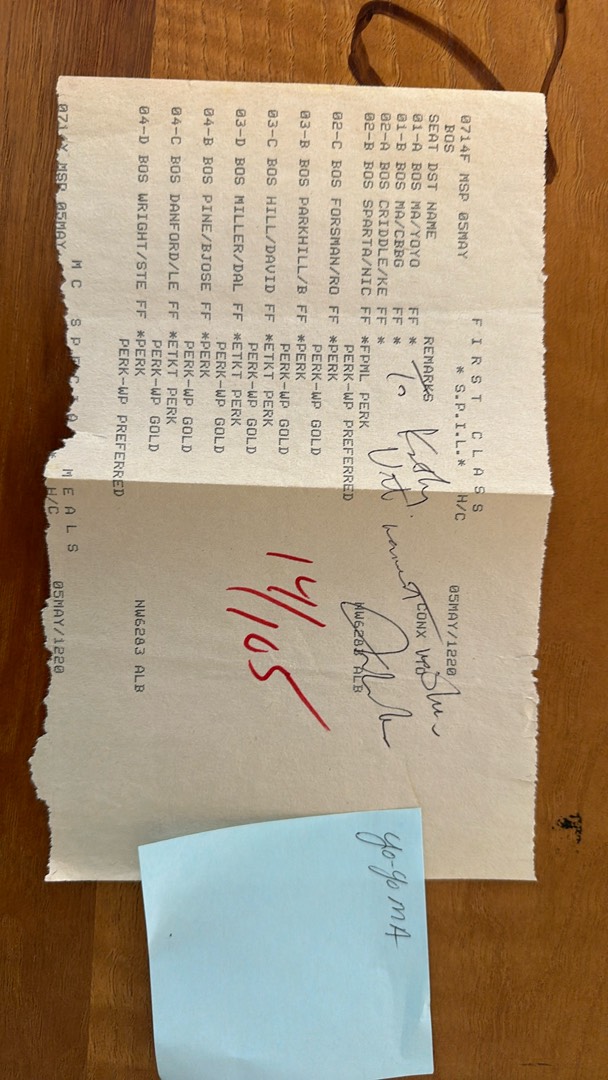 FIRST CLASS
0714F MSP 05MAY * S.P.I.L.* H/C 05MAY/1220
BOS
SEAT DST NAME REMARKS CONX
01-A BOS MA/YOYO FF *
01-B BOS MA/CBBG FF *
02-A BOS CRIDDLE/KE FF *
02-B BOS SPARTA/NIC FF *FPML PERK
PERK-WP PREFERRED
02-C BOS FORSMAN/RO FF *PERK
PERK-WP GOLD
03-B BOS PARKHILL/B FF *PERK
PERK-WP GOLD
03-C BOS HILL/DAVID FF *ETKT PERK
PERK-WP GOLD
03-D BOS MILLER/DAL FF *ETKT PERK
PERK-WP GOLD
04-B BOS PINE/BJOSE FF *PERK
PERK-WP GOLD
04-C BOS DANFORD/LE FF *ETKT PERK
PERK-WP GOLD
04-D BOS WRIGHT/STE FF *PERK NW6283 ALB
PERK-WP PREFERRED
MC SPECIAL MEALS
0714Y MSP 05MAY H/C 05MAY/1220
To Kathy
With warmest wishes
14/105
Yo-Yo MA